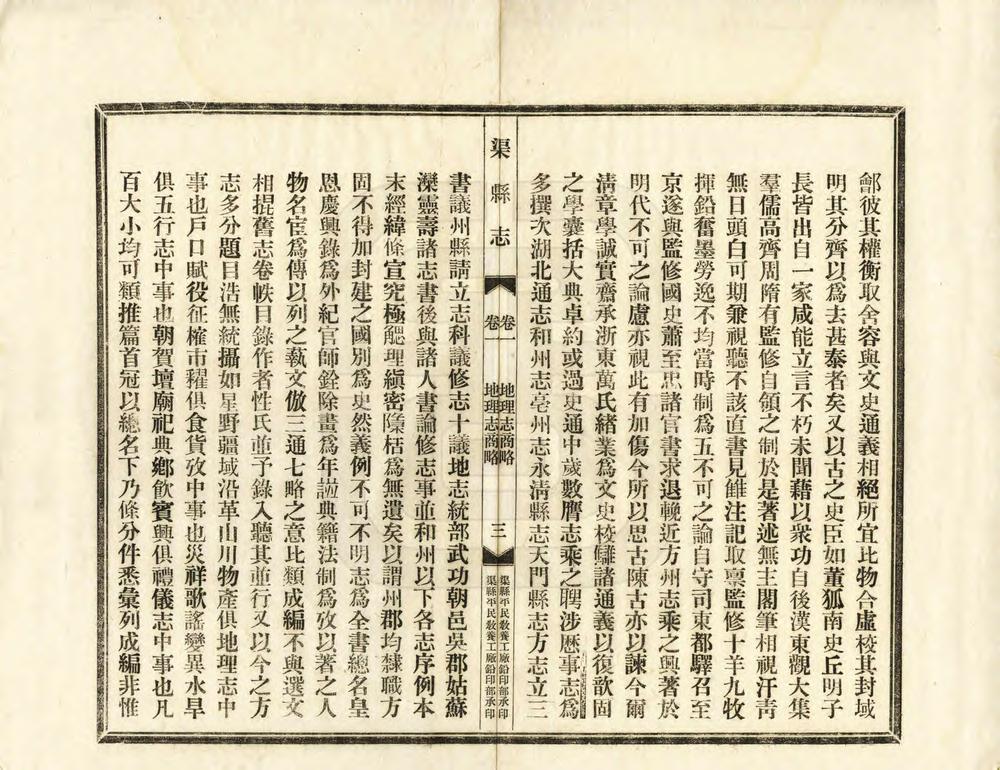 鄶彼其權衡取舍容與文史通義相絕所宜比物合慮校其封域
明其分齊以爲去甚泰者矣又以古之史臣如董狐南史丘明子
長皆出自一家咸能立言不朽未聞藉以衆功自後漢東觀大集
羣儒高齊周隋有監修自領之制於是著述無主閣筆相視汗靑
無日頭白可期兼視聽不該直書見讎注記取禀監修十羊九牧
揮鉛奮墨勞逸不均當時制爲五不可之論自守司東都驛召至
京遂與監修國史蕭至忠諸官書求退輓近方州志乘之興著於
明代不可之論慮亦視此有加傷今所以思古陳古亦以諫今爾
淸章學誠實齋承浙東萬氏緖業爲文史校讎諸通義以復歆固
之學囊括大典卓約或過史通中歲數膺志乘之聘涉歷事志爲
多撰次湖北通志和州志亳州志永淸縣志天門縣志方志立三
渠縣志
卷一
地理志商略
三
渠縣平民敎養工廠鉛印部承印
書議州縣請立志科議修志十議地志統部武功朝邑吳郡姑蘇
灤靈壽諸志書後與諸人書論修志事並和州以下各志序例本
末經緯條宣究極䚡理縝密隱栝爲無遺矣以謂州郡均隸職方
固不得加封建之國別爲史然義例不可不明志爲全書總名皇
恩慶興錄爲外紀官師銓除畫爲年譜典籍法制爲攷以著之人
物名宦爲傳以列之執文倣三通七略之意比類成編不與選文
相掍舊志卷帙目錄作者性氏並予錄入聽其並行又以今之方
志多分題目浩無統攝如星野疆域沿革山川物產俱地理志中
事也戶口賦役征榷市糴俱食貨攷中事也災祥歌謠變異水旱
俱五行志中事也朝賀壇廟祀典鄕飮賓興俱禮儀志中事也凡
百大小均可類推篇首冠以總名下乃條分件悉彙列成編非惟